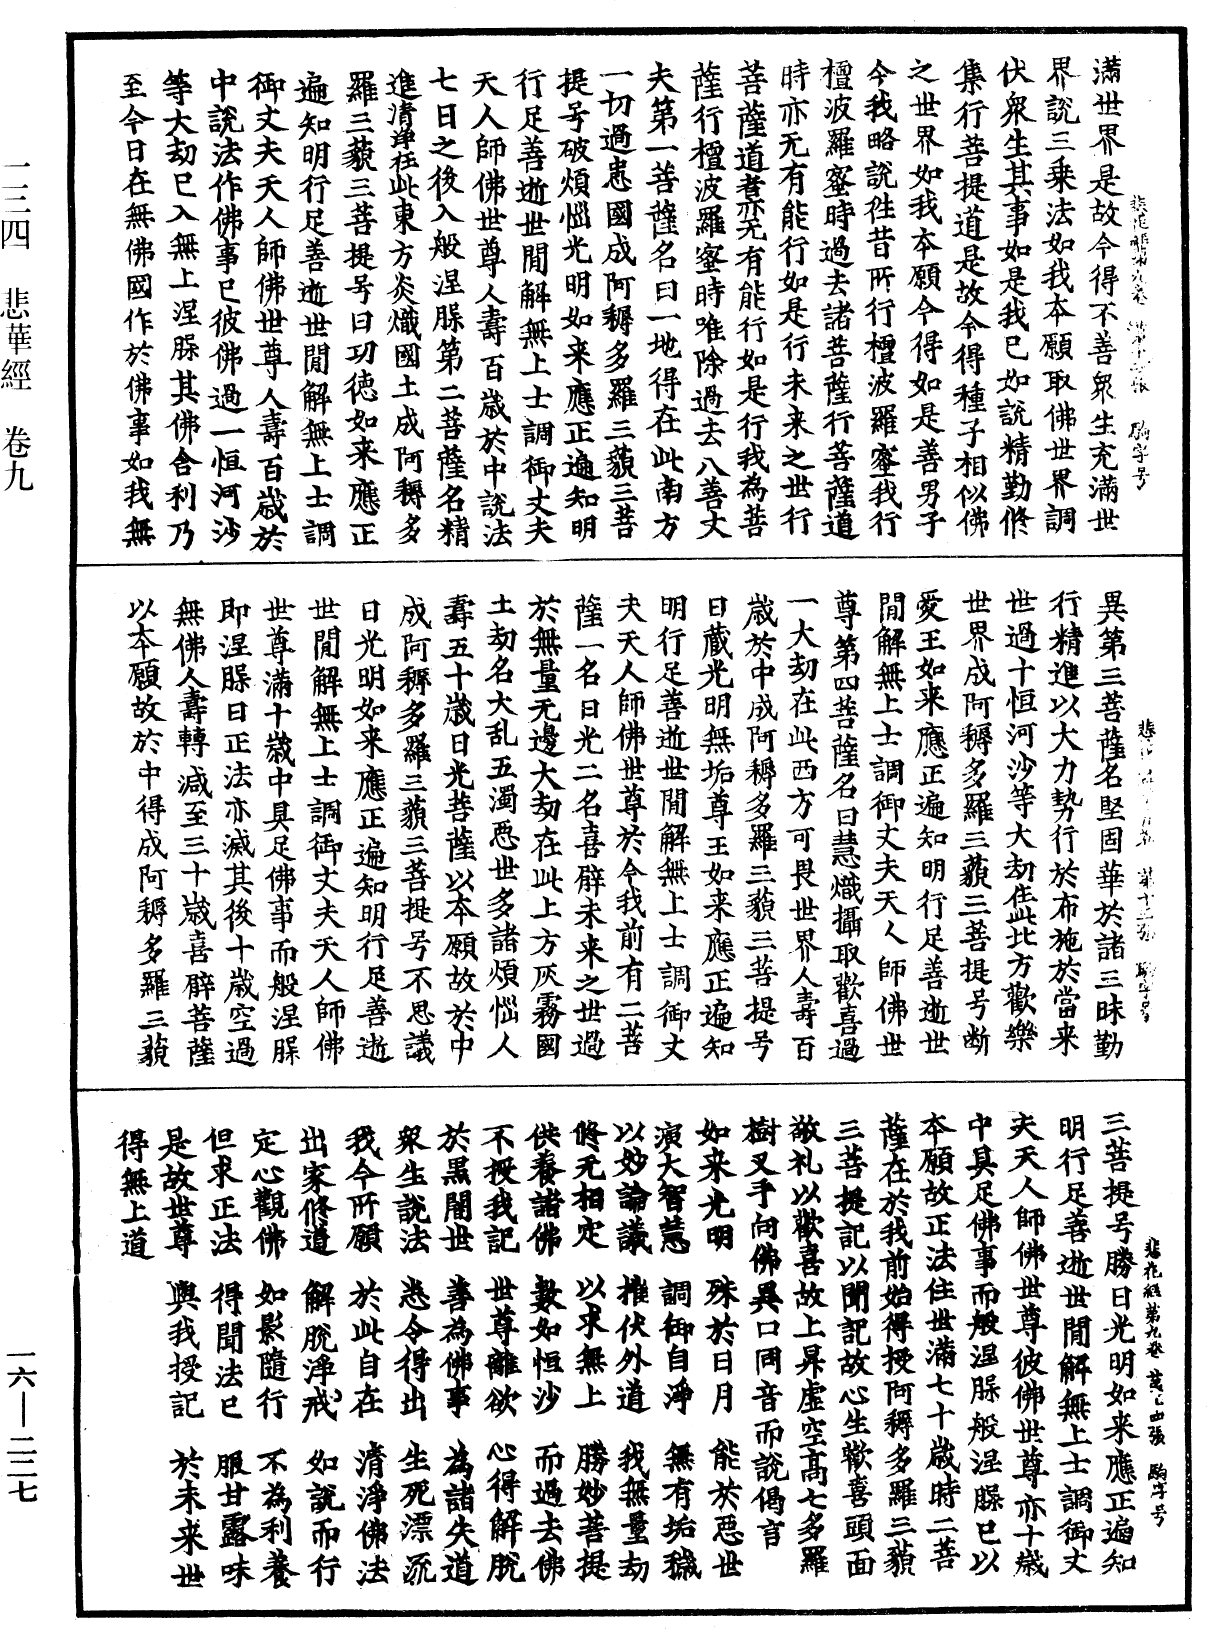 滿世界是故今得不善衆生充滿世
界說三乗法如我本願取佛世界調
伏衆生其事如是我已如說精勤修
集行菩提道是故今得種子相似佛
之世界如我本願今得如是善男子
今我略說往昔所行檀波羅蜜我行
檀波羅蜜時過去諸菩薩行菩薩道
時亦无有能行如是行未来之世行
菩薩道者亦无有能行如是行我為菩
薩行檀波羅蜜時唯除過去八善丈
夫第一菩薩名曰一地得在此南方
一切過患國成阿耨多羅三藐三菩
提号破煩惱光明如来應正遍知明
行足善逝世閒解無上士調御丈夫
天人師佛世尊人壽百歲於中說法
七日之後入般涅槃第二菩薩名精
進清淨在此東方炎熾國土成阿耨多
羅三藐三菩提号曰功徳如来應正
遍知明行足善逝世閒解無上士調
御丈夫天人師佛世尊人壽百歲於
中說法作佛事已彼佛過一恒河沙
等大劫已入無上涅槃其佛舍利乃
至今日在無佛國作於佛事如我無
異第三菩薩名堅固華於諸三昧勤
行精進以大力勢行於布施於當来
世過十恒河沙等大劫在此北方歡樂
世界成阿耨多羅三藐三菩提号断
愛王如来應正遍知明行足善逝世
閒解無上士調御丈夫天人師佛世
尊第四菩薩名曰慧熾攝取歡喜過
一大劫在此西方可畏世界人壽百
歲於中成阿耨多羅三藐三菩提号
日蔵光明無垢尊王如来應正遍知
明行足善逝世閒解無上士調御丈
夫天人師佛世尊於今我前有二菩
薩一名日光二名喜臂未来之世過
於無量无邊大劫在此上方灰霧國
土劫名大乱五濁惡世多諸煩惱人
壽五十歲日光菩薩以本願故於中
成阿耨多羅三藐三菩提号不思議
日光明如来應正遍知明行足善逝
世閒解無上士調御丈夫天人師佛
世尊滿十歲中具足佛事而般涅槃
即涅槃日正法亦滅其後十歲空過
無佛人壽轉減至三十歲喜臂菩薩
以本願故於中得成阿耨多羅三藐
三菩提号勝日光明如来應正遍知
明行足善逝世閒解無上士調御丈
夫天人師佛世尊彼佛世尊亦十歲
中具足佛事而般涅槃般涅槃已以
本願故正法住世滿七十歲時二菩
薩在於我前始得授阿耨多羅三藐
三菩提記以聞記故心生歡喜頭面
敬礼以歡喜故上昇虛空高七多羅
樹叉手向佛異口同音而說偈言
如来光明　殊於日月　能於惡世
演大智慧　調御自淨　無有垢穢
以妙論議　摧伏外道　我無量劫
修无相定　以求無上　勝妙菩提
供養諸佛　數如恒沙　而過去佛
不授我記　世尊離欲　心得解脫
於黑闇世　善為佛事　為諸失道
衆生說法　悉令得出　生死漂流
我今所願　於此自在　清淨佛法
出家修道　解脫淨戒　如說而行
定心觀佛　如影隨行　不為利養
但求正法　得聞法已　服甘露味
是故世尊　與我授記　於未来世
得無上道
悲花經第九卷
一三四　悲華經　卷九
一六—二二七